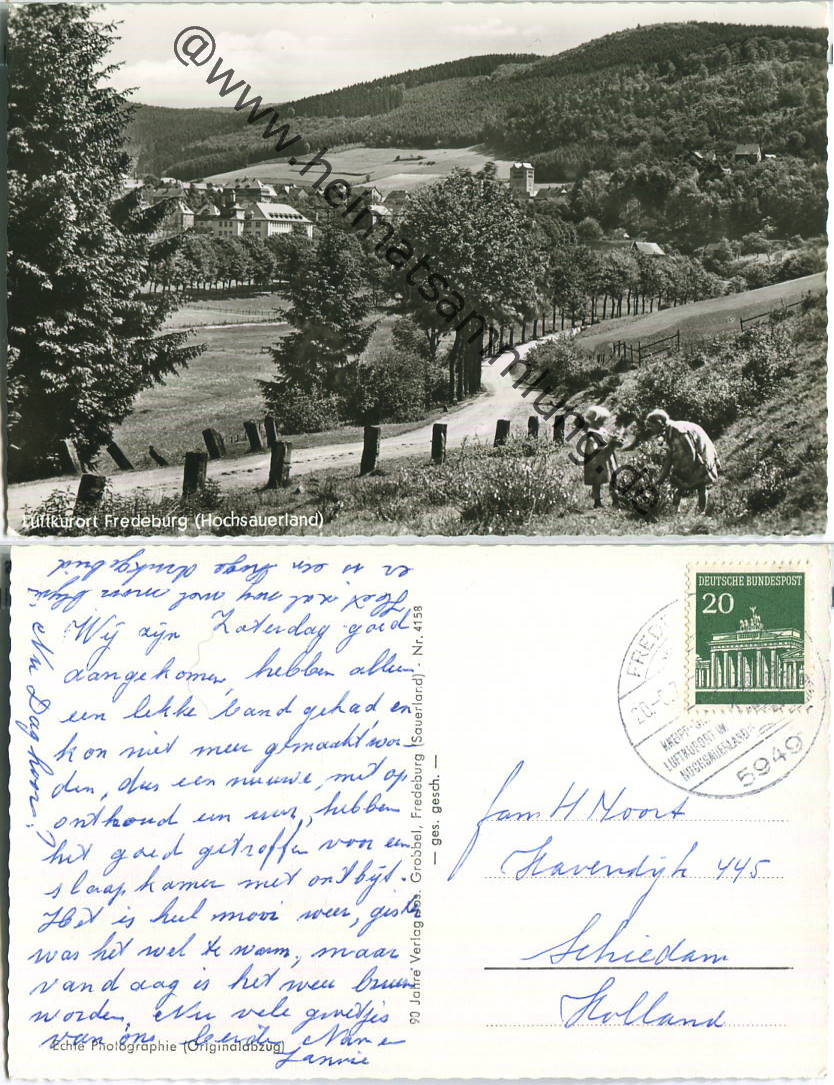 @www.heimatsammlung.de
Luftkurort Fredeburg (Hochsauerland)
Wij zijn Zaterdag goed
aangekomen, hebben alleen
een lekke band gehad en
kon niet meer gemaakt wor-
den, dus een nieuwe, met op
onthoud een uur, hebben
het goed getroffen voor een
slaapkamer met ontbijt.
Het is heel mooi weer, gister
was het wel te warm, maar
vandaag is het weer
worden, Nu vele groetjes
van ons
Jannie
Nu Dag hoor!
er is een hoge
90 Jahre Verlag Jos. Grobbel, Fredeburg (Sauerland) - Nr. 4158
— ges. gesch. —
Echte Photographie (Originalabzug)
DEUTSCHE BUNDESPOST
20
LUFTKURORT IM
HOCHSAUERLAND
5949
fam H Noort
Havendijk 445
Schiedam
Holland